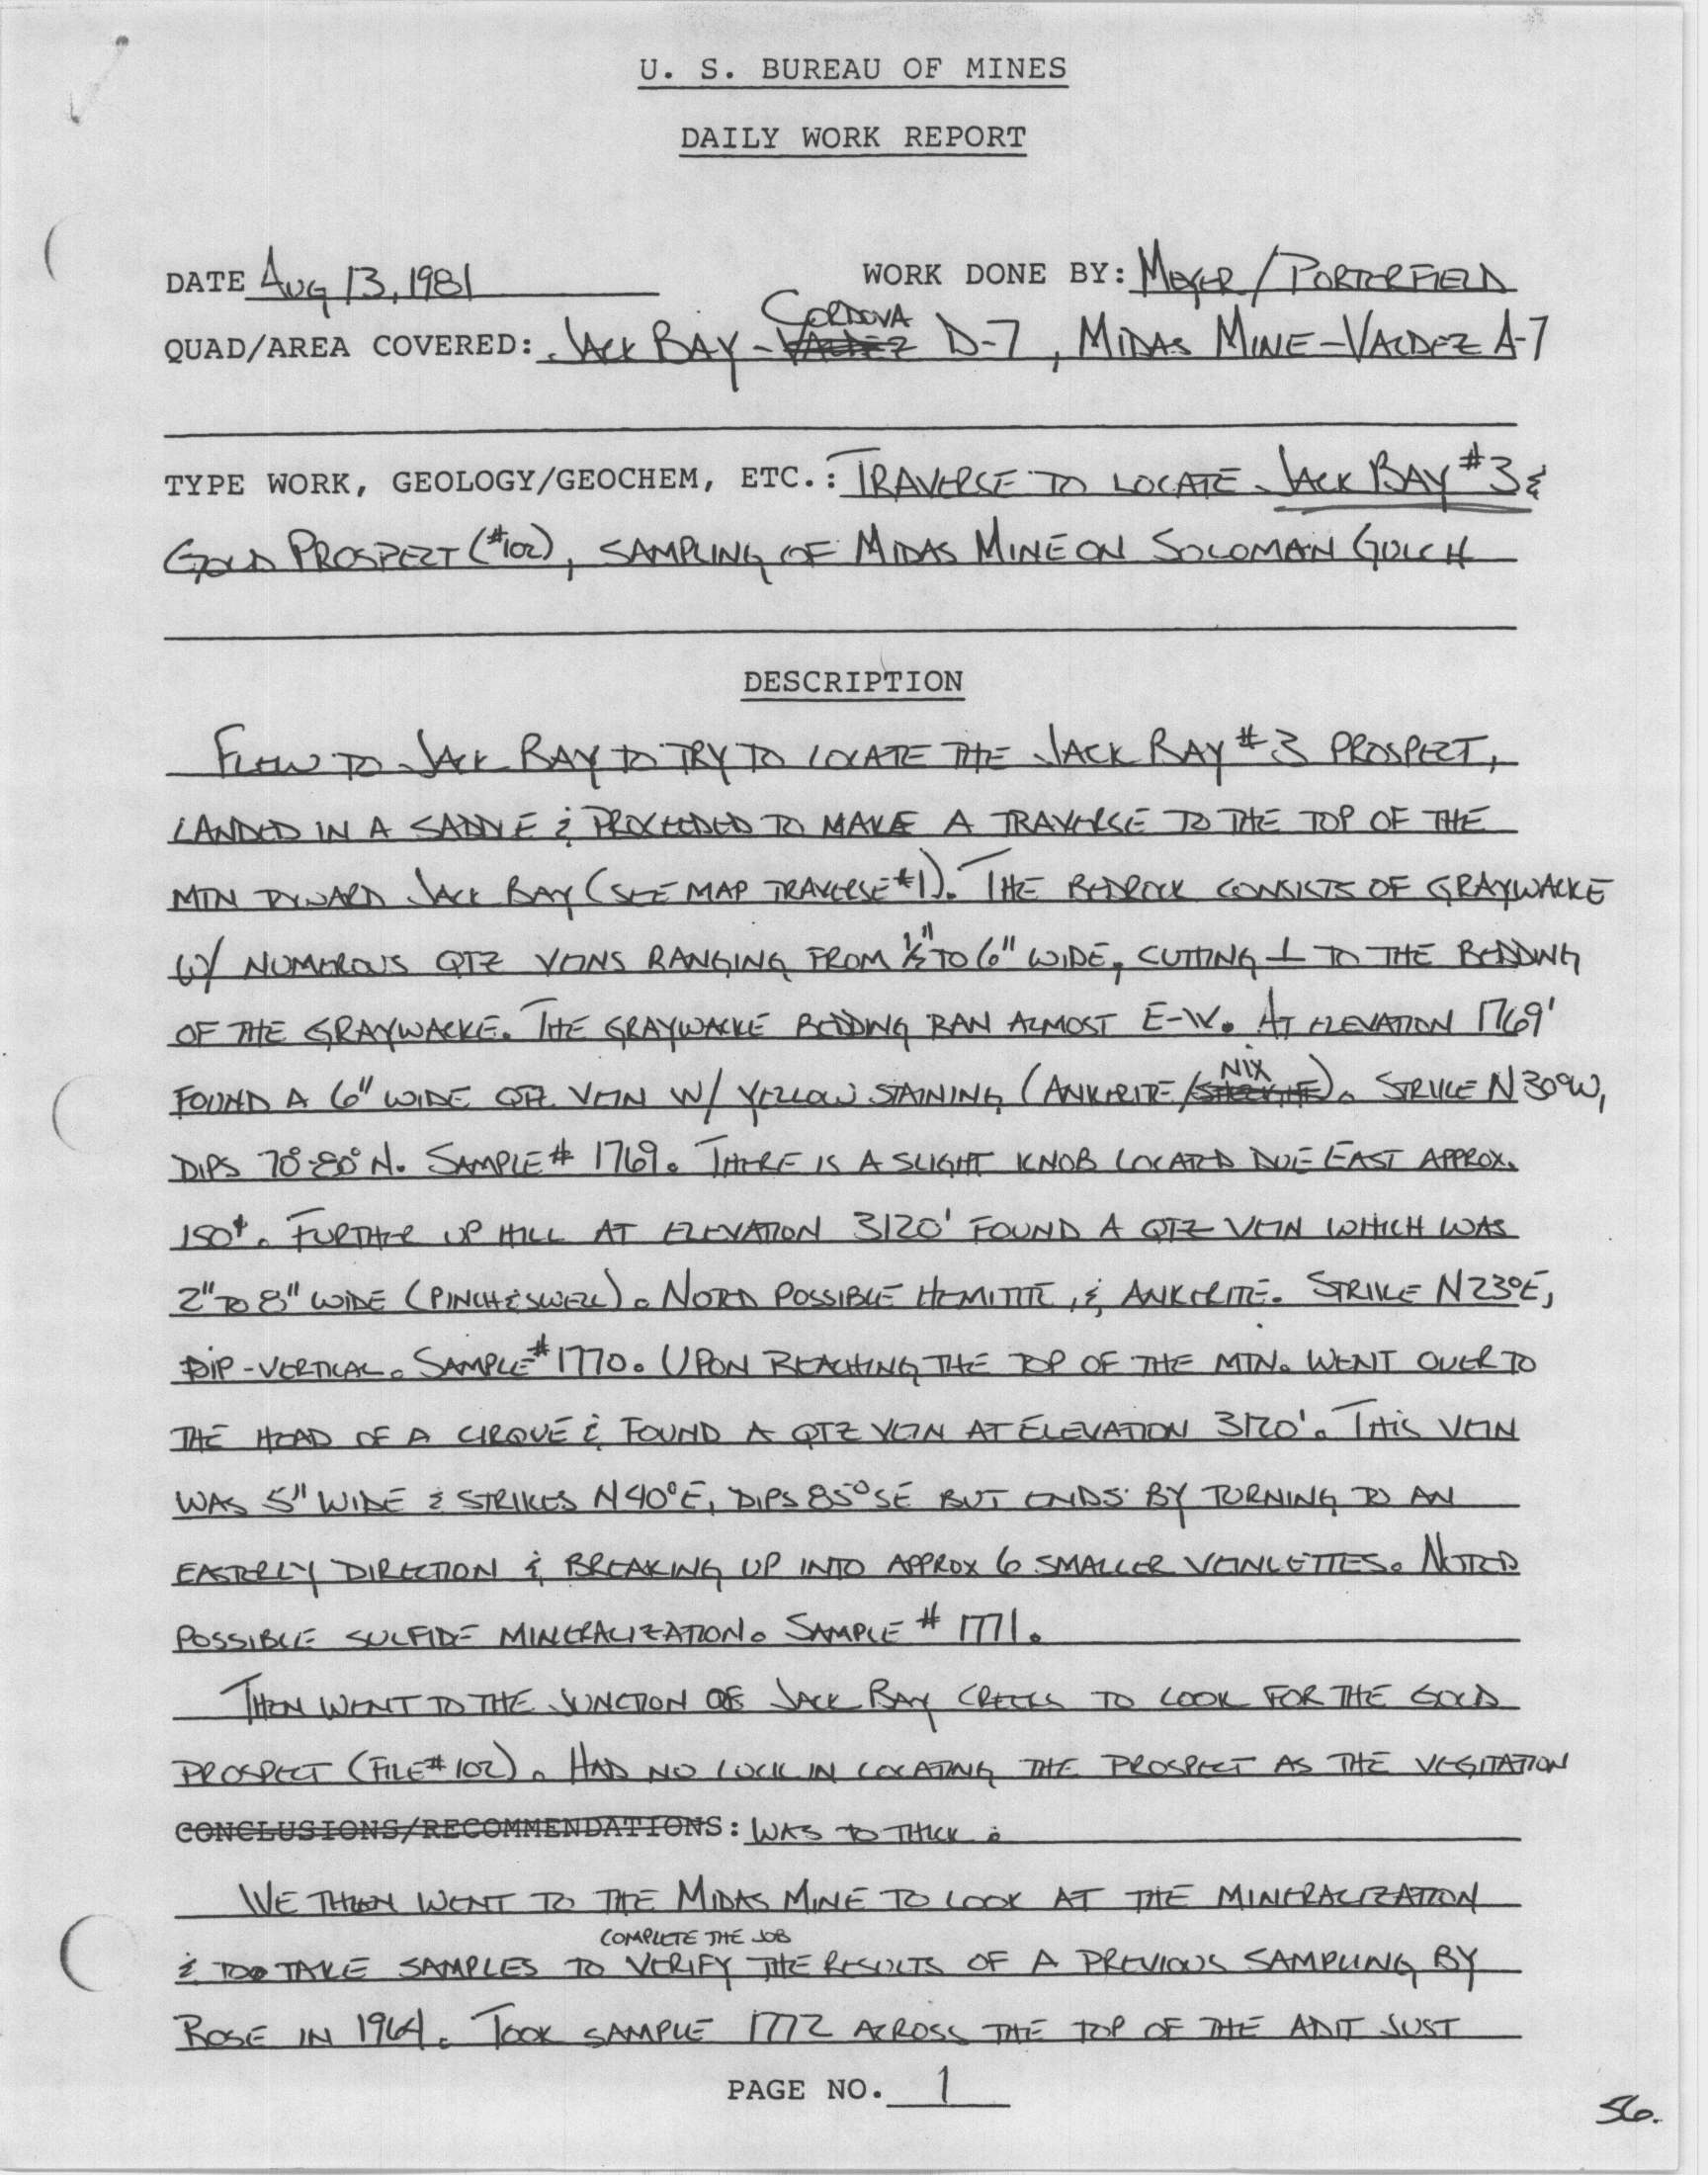 U. S. BUREAU OF MINES
DAILY WORK REPORT
DATE AUG 13, 1981 WORK DONE BY: MEYER / PORTERFIELD
CORDOVA
QUAD/AREA COVERED: JACK BAY - VALDEZ D-7, MIDAS MINE - VALDEZ A-7
TYPE WORK, GEOLOGY/GEOCHEM, ETC.: TRAVERSE TO LOCATE JACK BAY #3 &
GOLD PROSPECT (#102), SAMPLING OF MIDAS MINE ON SOLOMAN GULCH
DESCRIPTION
FLEW TO JACK BAY TO TRY TO LOCATE THE JACK BAY #3 PROSPECT,
LANDED IN A SADDLE & PROCEEDED TO MAKE A TRAVERSE TO THE TOP OF THE
MTN TOWARD JACK BAY (SEE MAP TRAVERSE #1). THE BEDROCK CONSISTS OF GRAYWACKE
W/ NUMEROUS QTZ VEINS RANGING FROM ½" TO 6" WIDE, CUTTING ⊥ TO THE BEDDING
OF THE GRAYWACKE. THE GRAYWACKE BEDDING RAN ALMOST E-W. AT ELEVATION 1769'
NIX
FOUND A 6" WIDE QTZ VEIN W/ YELLOW STAINING (ANKERITE/). STRIKE N 30° W,
DIPS 70°-80° N. SAMPLE # 1769. THERE IS A SLIGHT KNOB LOCATED DUE EAST APPROX.
150'. FURTHER UP HILL AT ELEVATION 3120' FOUND A QTZ VEIN WHICH WAS
2" TO 8" WIDE (PINCH & SWELL). NOTED POSSIBLE HEMITITE, & ANKERITE. STRIKE N 23° E,
DIP - VERTICAL. SAMPLE # 1770. UPON REACHING THE TOP OF THE MTN. WENT OVER TO
THE HEAD OF A CIRQUE & FOUND A QTZ VEIN AT ELEVATION 3170'. THIS VEIN
WAS 5" WIDE & STRIKES N 40° E, DIPS 85° SE BUT ENDS BY TURNING TO AN
EASTERLY DIRECTION & BREAKING UP INTO APPROX 6 SMALLER VEINLETTES. NOTED
POSSIBLE SULFIDE MINERALIZATION. SAMPLE # 1771.
THEN WENT TO THE JUNCTION OF JACK BAY CREEKS TO LOOK FOR THE GOLD
PROSPECT (FILE # 102). HAD NO LUCK IN LOCATING THE PROSPECT AS THE VEGITATION
CONCLUSIONS/RECOMMENDATIONS: WAS TO THICK.
WE THEN WENT TO THE MIDAS MINE TO LOOK AT THE MINERALIZATION
COMPLETE THE JOB
& TOO TAKE SAMPLES TO VERIFY THE RESULTS OF A PREVIOUS SAMPLING BY
ROSE IN 1964. TOOK SAMPLE 1772 ACROSS THE TOP OF THE ADIT JUST
PAGE NO. 1
56.